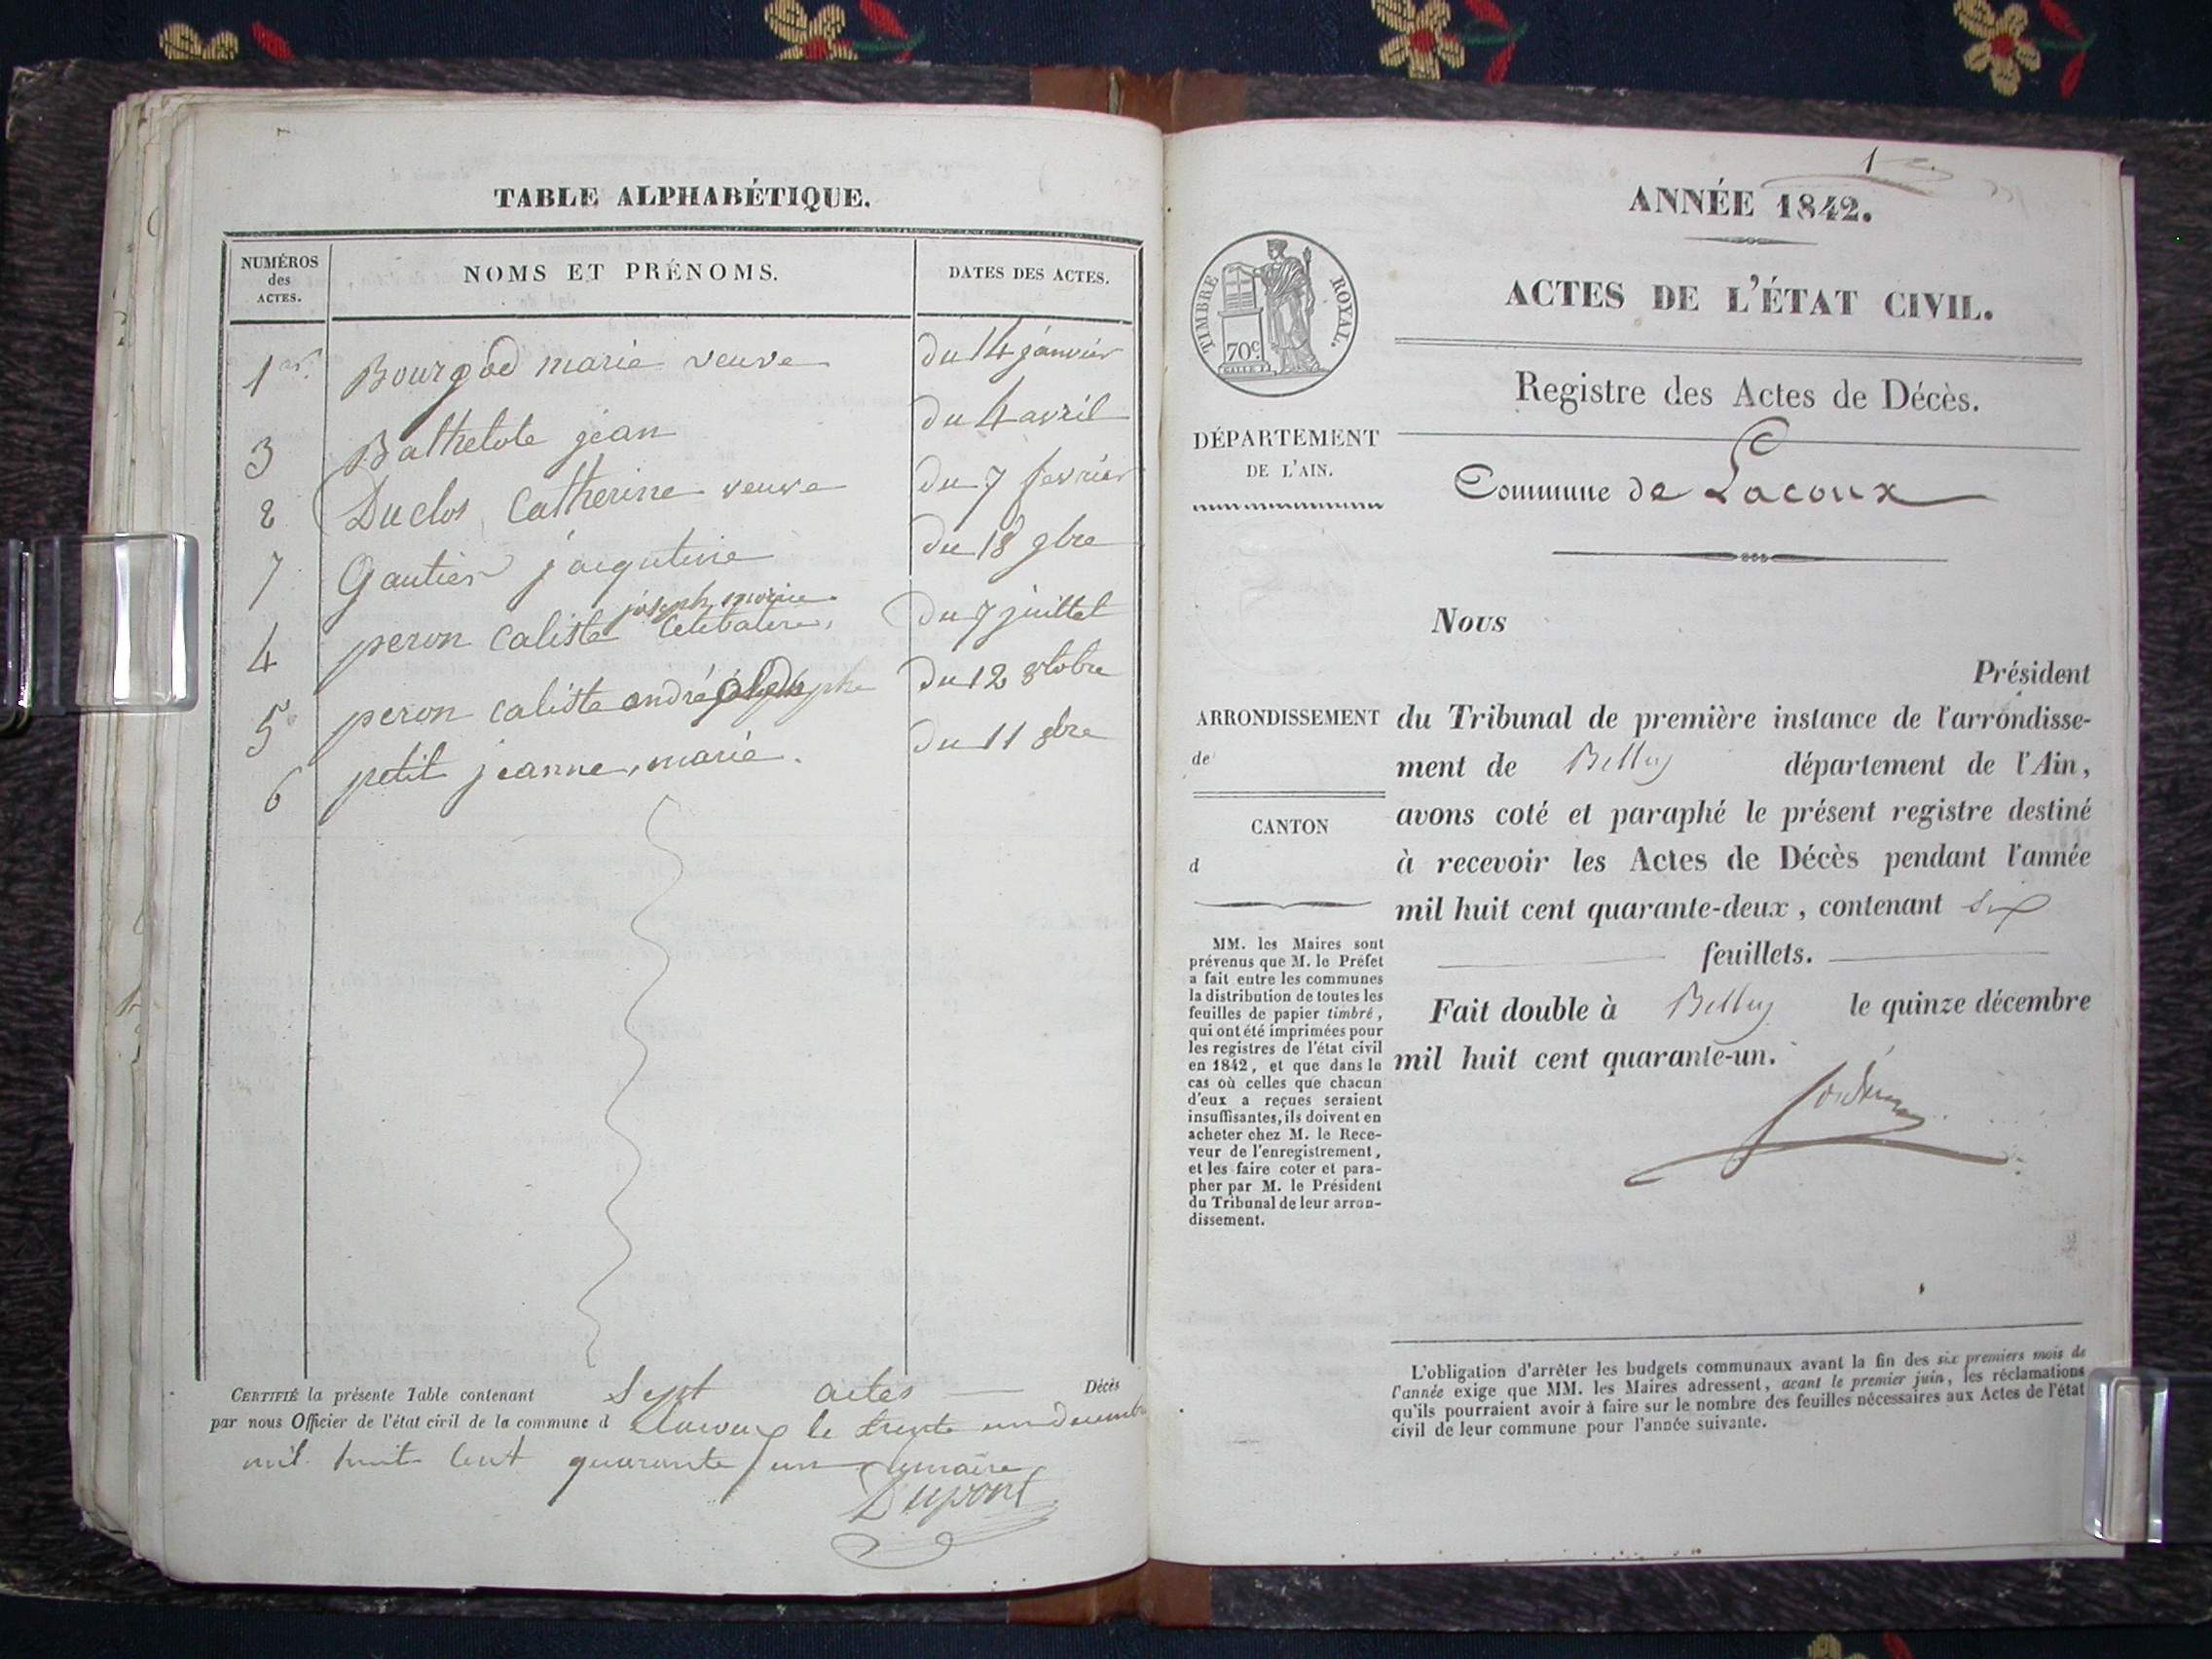 TABLE ALPHABÉTIQUE.
NUMÉROS
des
ACTES.
NOMS ET PRÉNOMS.
DATES DES ACTES.
1er. Bourgod marie veuve du 14 janvier
3 Balthelote jean du 4 avril
2 Duclos Catherine veuve du 7 fevrier
7 Gautier du 18 9bre
joseph
4 peron caliste Celibataire, du 7 juillet
5 peron caliste andré du 12 8tobre
6 petit jeanne, marie. du 11 8bre
CERTIFIÉ la présente Table contenant Sept actes Décès
par nous Officier de l'état civil de la commune d le trente un decembre
mil huit cent quarante un le maire
Dupont
1
ANNÉE 1842.
ACTES DE L'ÉTAT CIVIL.
TIMBRE ROYAL.
70c.
Registre des Actes de Décès.
DÉPARTEMENT
DE L'AIN.
Commune de Lacoux
Nous
Président
ARRONDISSEMENT
de
CANTON
d
du Tribunal de première instance de l'arrondisse-
ment de Belley département de l'Ain,
avons coté et paraphé le présent registre destiné
à recevoir les Actes de Décès pendant l'année
mil huit cent quarante-deux, contenant six
feuillets.
Fait double à Belley le quinze décembre
mil huit cent quarante-un.
MM. les Maires sont
prévenus que M. le Préfet
a fait entre les communes
la distribution de toutes les
feuilles de papier timbré,
qui ont été imprimées pour
les registres de l'état civil
en 1842, et que dans le
cas où celles que chacun
d'eux a reçues seraient
insuffisantes, ils doivent en
acheter chez M. le Rece-
veur de l'enregistrement,
et les faire coter et para-
pher par M. le Président
du Tribunal de leur arron-
dissement.
L'obligation d'arrêter les budgets communaux avant la fin des six premiers mois de
l'année exige que MM. les Maires adressent, avant le premier juin, les réclamations
qu'ils pourraient avoir à faire sur le nombre des feuilles nécessaires aux Actes de l'état
civil de leur commune pour l'année suivante.